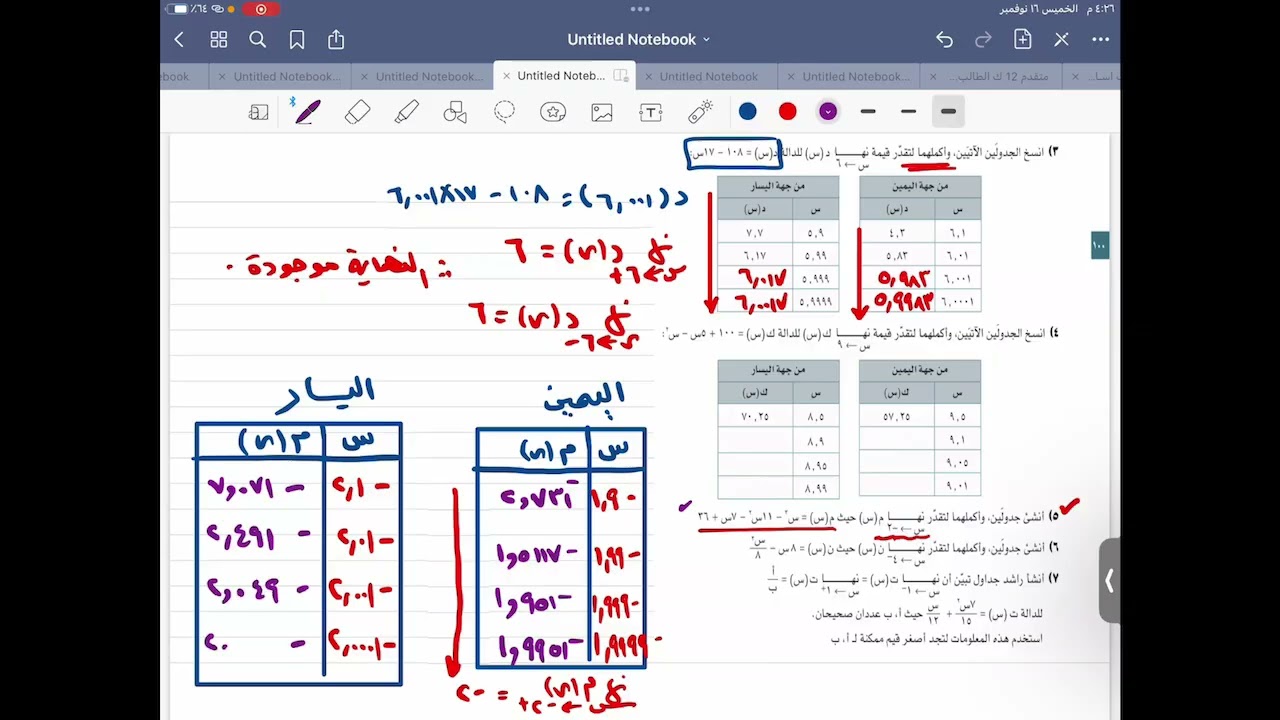 ٤:٢٦ م الخميس ١٦ نوفمبر
٪٦٤
Untitled Notebook
ebook
Untitled Notebook...
Untitled Notebook...
Untitled Noteb...
Untitled Notebook
Untitled Notebook...
متقدم 12 ك الطالب...
T
٣) انسخ الجدولَين الآتيَين، وأكملهما لتقدّر قيمة نهــــا د(س) للدالة د(س) = ١٠٨ − ١٧س:
س ← ٦
من جهة اليمين
س د(س)
٦,١ ٤,٣
٦,٠١ ٥,٨٣
٦,٠٠١ ٥,٩٨٣
٦,٠٠٠١ ٥,٩٩٨٣
من جهة اليسار
س د(س)
٥,٩ ٧,٧
٥,٩٩ ٦,١٧
٥,٩٩٩ ٦,٠١٧
٥,٩٩٩٩ ٦,٠٠١٧
١٠٠
د(٦,٠٠١) = ١٠٨ − ١٧×٦,٠٠١
نها د(س) = ٦
س←٦+
∴ النهاية موجودة.
نها د(س) = ٦
س←٦−
٤) انسخ الجدولَين الآتيَين، وأكملهما لتقدّر قيمة نهــــا ك(س) للدالة ك(س) = ١٠٠ + ٥س − س²:
س ← ٩
من جهة اليمين
س ك(س)
٩,٥ ٥٧,٢٥
٩,١
٩,٠٥
٩,٠١
من جهة اليسار
س ك(س)
٨,٥ ٧٠,٢٥
٨,٩
٨,٩٥
٨,٩٩
٥) أنشئ جدولَين، وأكملهما لتقدّر نهــــا م(س) حيث م(س) = س³ − ١١س² − ٧س + ٣٦
س ← −٢
٦) أنشئ جدولَين، وأكملهما لتقدّر نهــــا ن(س) حيث ن(س) = ٨س − س²/٨
س ← −٤
٧) أنشأ راشد جداول تبيّن أن نهــــا ت(س) = نهــــا ت(س) = أ/ب
س ← ١− س ← ١+
للدالة ت (س) = ٧س²/١٥ + س/١٢ حيث أ، ب عددان صحيحان.
استخدم هذه المعلومات لتجد أصغر قيم ممكنة لـ أ، ب
اليمين
س م(س)
−١,٩
−١,٩٩ −١,٥١١٧
−١,٩٩٩ −١,٩٥١
−١,٩٩٩٩ −١,٩٩٥١
نها م(س) = −٢
س←−٢+
اليسار
س م(س)
−٢,١ −٧,٠٧١
−٢,٠١ −٢,٤٩١
−٢,٠٠١ −٢,٠٤٩
−٢,٠٠٠١ −٢,٠